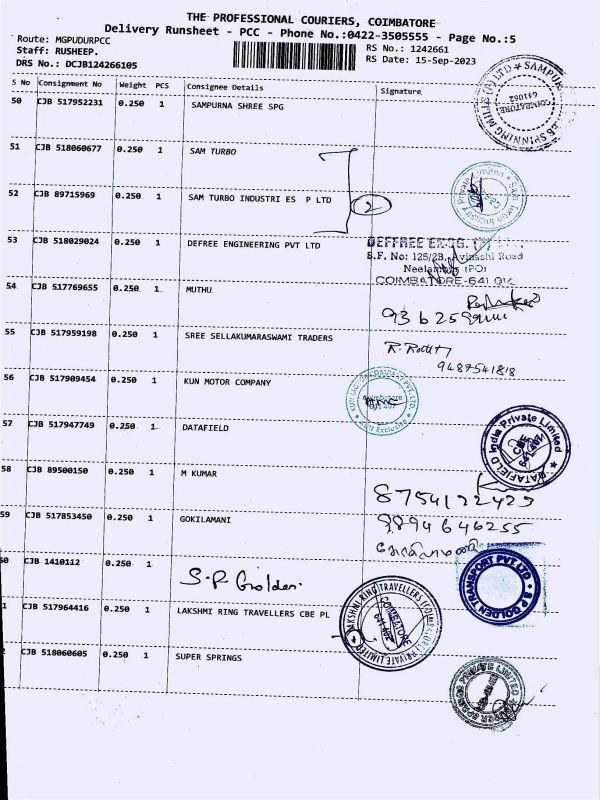 THE PROFESSIONAL COURIERS, COIMBATORE
Delivery Runsheet - PCC - Phone No.:0422-3505555 - Page No.:5
Route: MGPUDURPCC
Staff: RUSHEEP.
DRS No.: DCJB124266105
RS No.: 1242661
RS Date: 15-Sep-2023
S No Consignment No Weight PCS Consignee Details Signature
50 CJB 517952231 0.250 1 SAMPURNA SHREE SPG
COIMBATORE
641062
51 CJB 518060677 0.250 1 SAM TURBO
52 CJB 89715969 0.250 1 SAM TURBO INDUSTRI ES P LTD
2
53 CJB 518029024 0.250 1 DEFREE ENGINEERING PVT LTD
S.F. No: 125/2B, Avinashi Road
(PO)
54 CJB 517769655 0.250 1 MUTHU
55 CJB 517959198 0.250 1 SREE SELLAKUMARASWAMI TRADERS
9487541818
56 CJB 517909454 0.250 1 KUN MOTOR COMPANY
KUN MOTOR COMPANY PVT. LTD.
57 CJB 517947749 0.250 1 DATAFIELD
DATAFIELD India Private Limited
58 CJB 89500150 0.250 1 M KUMAR
8754122423
59 CJB 517853450 0.250 1 GOKILAMANI
9894646255
கோகிலாமணி
60 CJB 1410112 0.250 1
S.P. Golden.
S P GOLDEN TRANSPORT PVT LTD
1 CJB 517964416 0.250 1 LAKSHMI RING TRAVELLERS CBE PL
LAKSHMI RING TRAVELLERS (COIMBATORE) PRIVATE LIMITED
COIMBATORE
2 CJB 518060605 0.250 1 SUPER SPRINGS
SUPER SPRINGS PRIVATE LIMITED